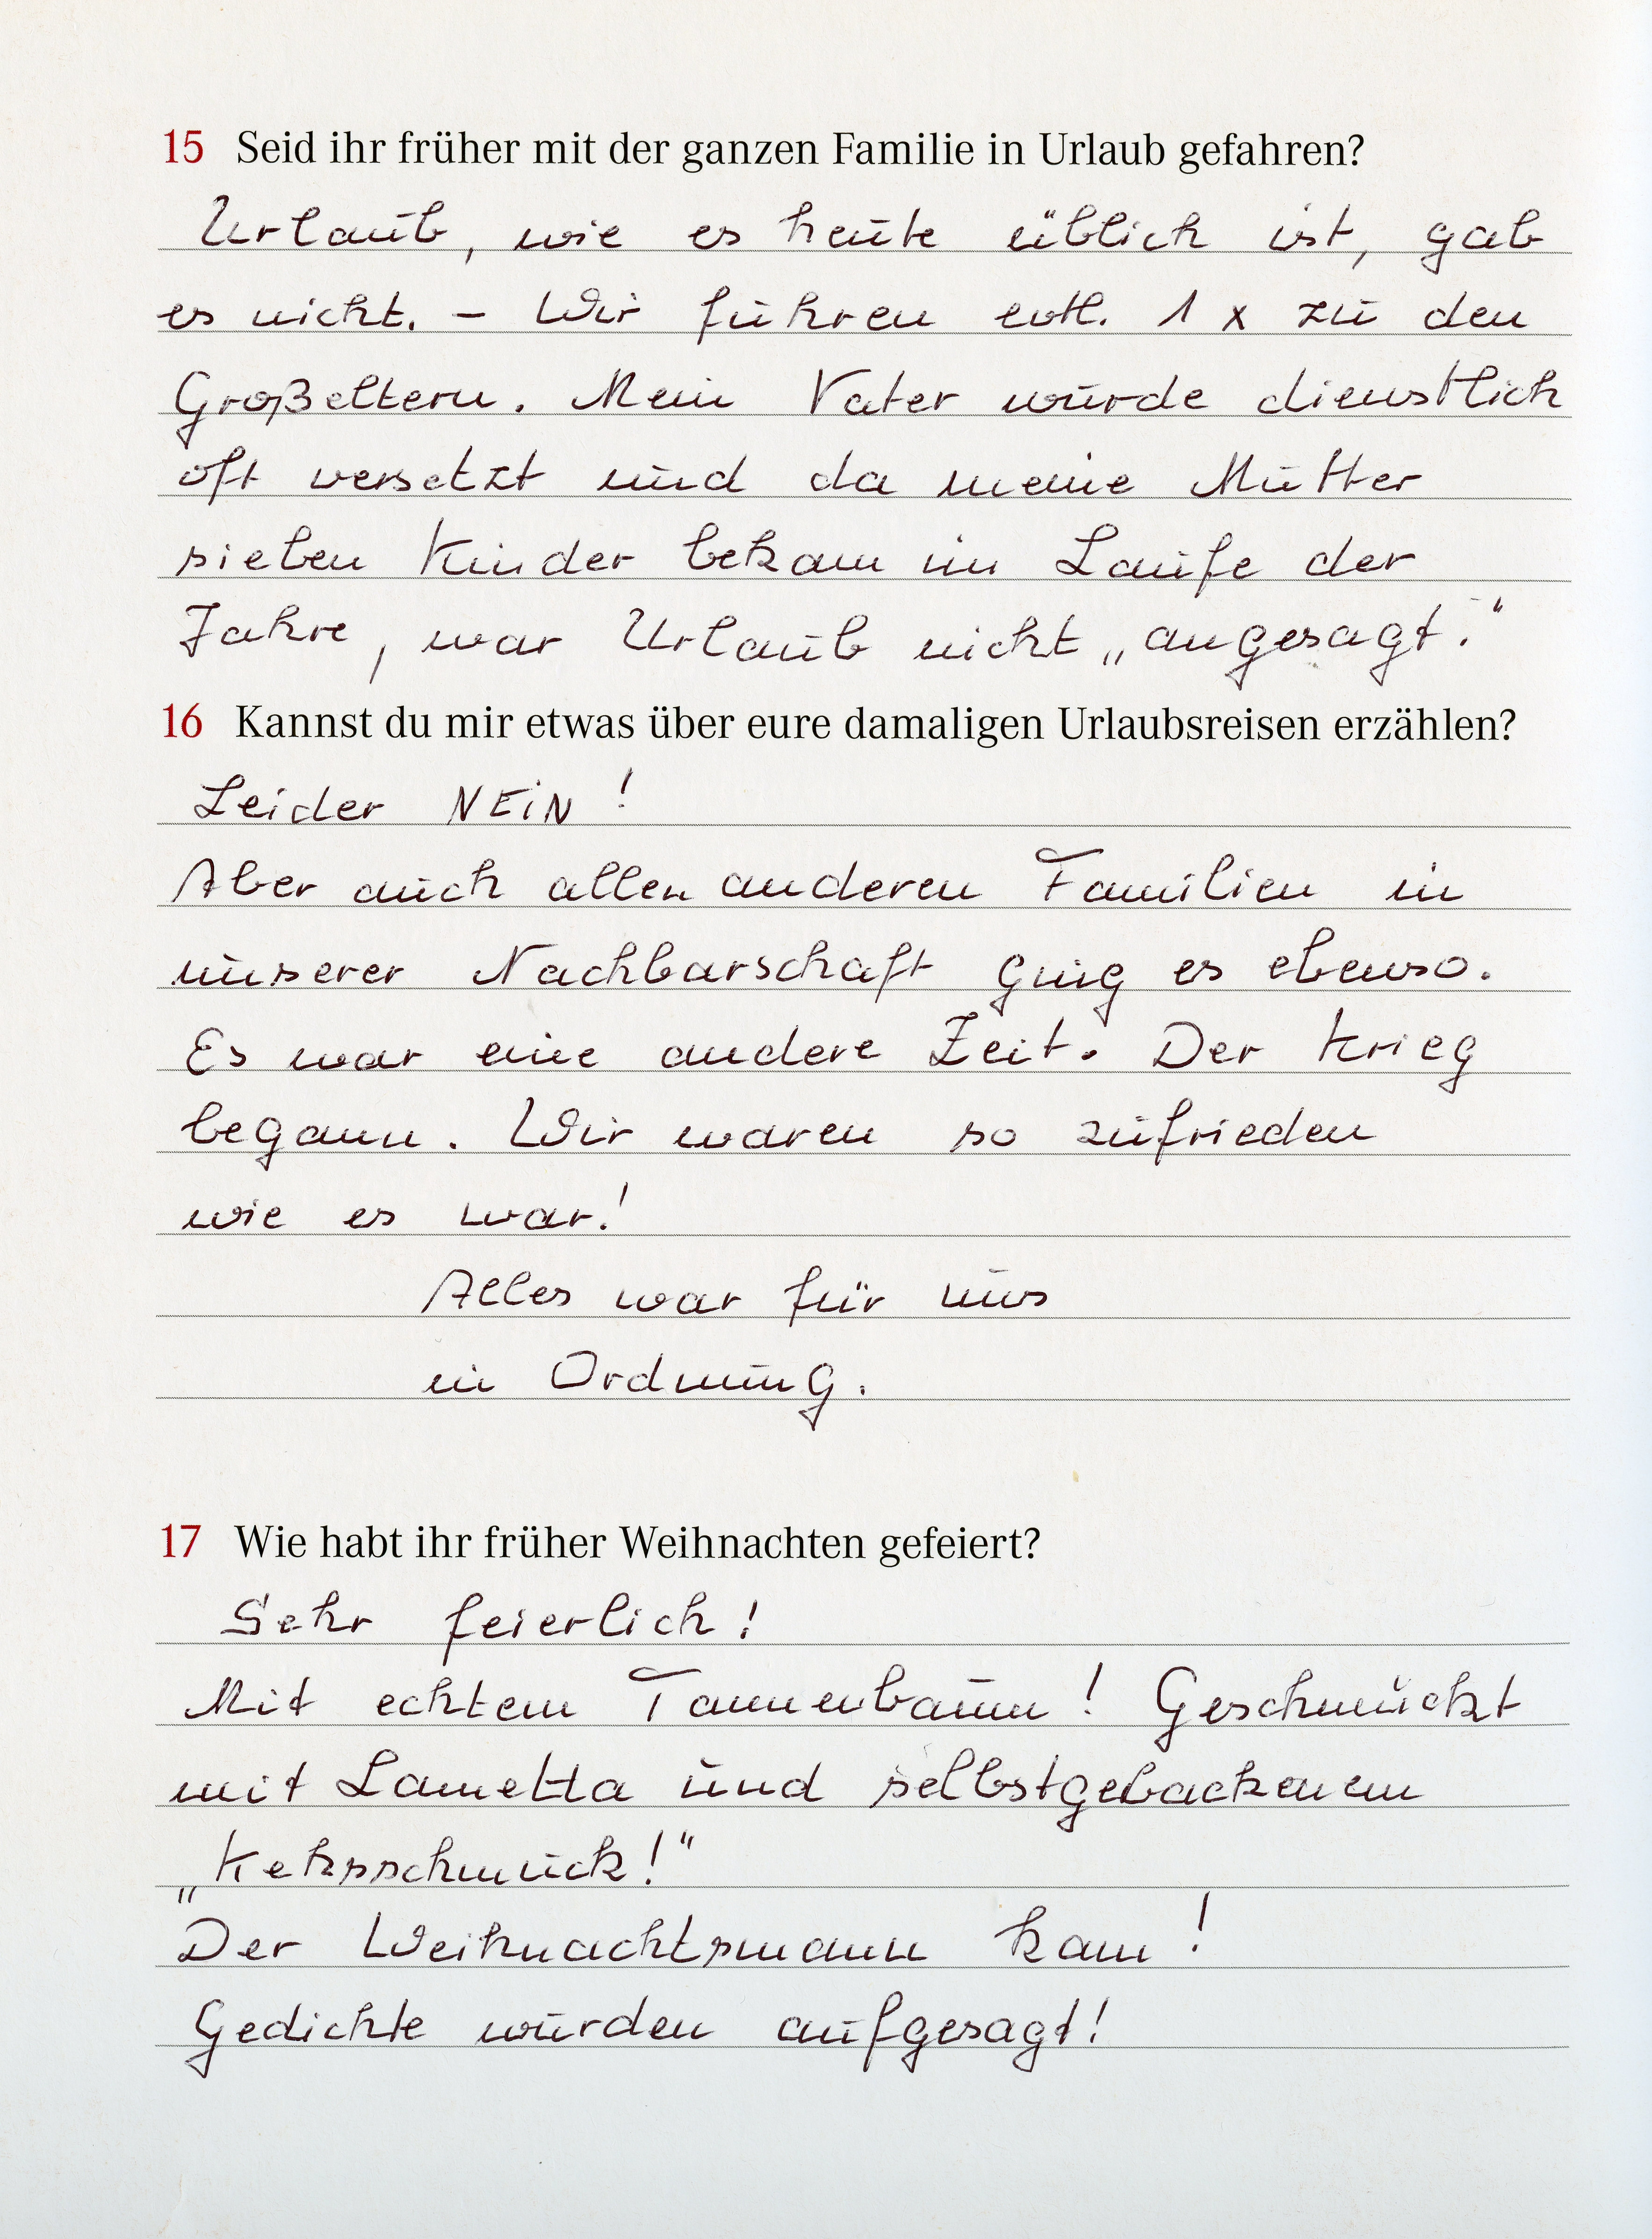 15 Seid ihr früher mit der ganzen Familie in Urlaub gefahren?
Urlaub, wie es heute üblich ist, gab
es nicht. – Wir fuhren evtl. 1 x zu den
Großeltern. Mein Vater wurde dienstlich
oft versetzt und da meine Mutter
sieben Kinder bekam im Laufe der
Jahre, war Urlaub nicht „angesagt."
16 Kannst du mir etwas über eure damaligen Urlaubsreisen erzählen?
Leider NEIN!
Aber auch allen anderen Familien in
unserer Nachbarschaft ging es ebenso.
Es war eine andere Zeit. Der Krieg
begann. Wir waren so zufrieden
wie es war!
Alles war für uns
in Ordnung.
17 Wie habt ihr früher Weihnachten gefeiert?
Sehr feierlich!
Mit echtem Tannenbaum! Geschmückt
mit Lametta und selbstgebackenem
„Keksschmuck!"
Der Weihnachtsmann kam!
Gedichte wurden aufgesagt!